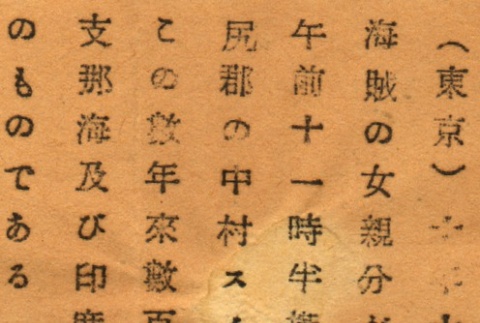 (東京)
海賊の女親分
午前十一時半
尻郡の中村ス
この數年來數百
支那海及び印度
のものである